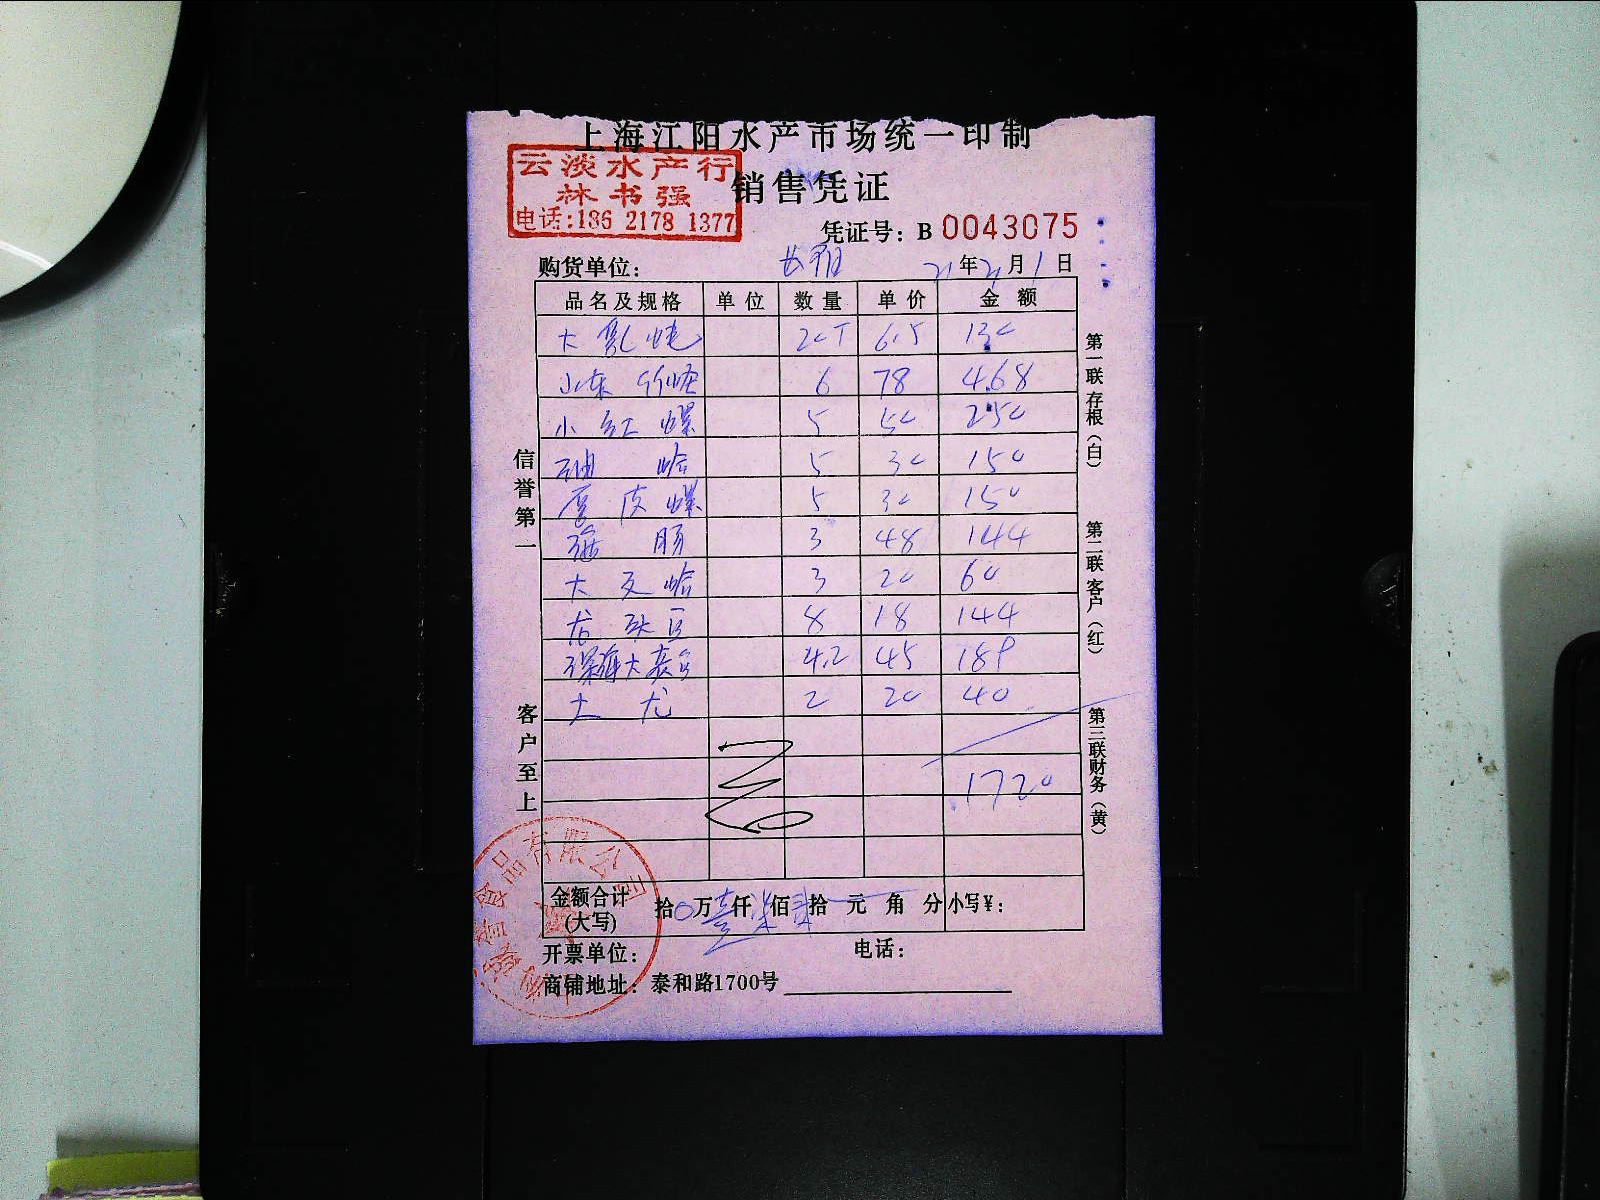 上海江阳水产市场统一印制
云淡水产行
林书强
电话:186 2178 1377
销售凭证
凭证号: B 0043075
购货单位: 21年2月1日
品名及规格 单位 数量 单价 金额
大 6.5 130
山东竹蛏 6 78 468
小红螺 5 50 250
油蛤 5 30 150
厚皮螺 5 30 150
海肠 3 48 144
大文蛤 3 20 60
龙珠豆 8 18 144
深海大 4.2 45 189
大龙 2 20 40
1720
金额合计
(大写)
拾0万壹仟柒佰 拾 元 角 分 小写¥:
开票单位: 电话:
商铺地址: 泰和路1700号
信誉第一
客户至上
第一联存根(白)
第二联客户(红)
第三联财务(黄)
食品有限公司